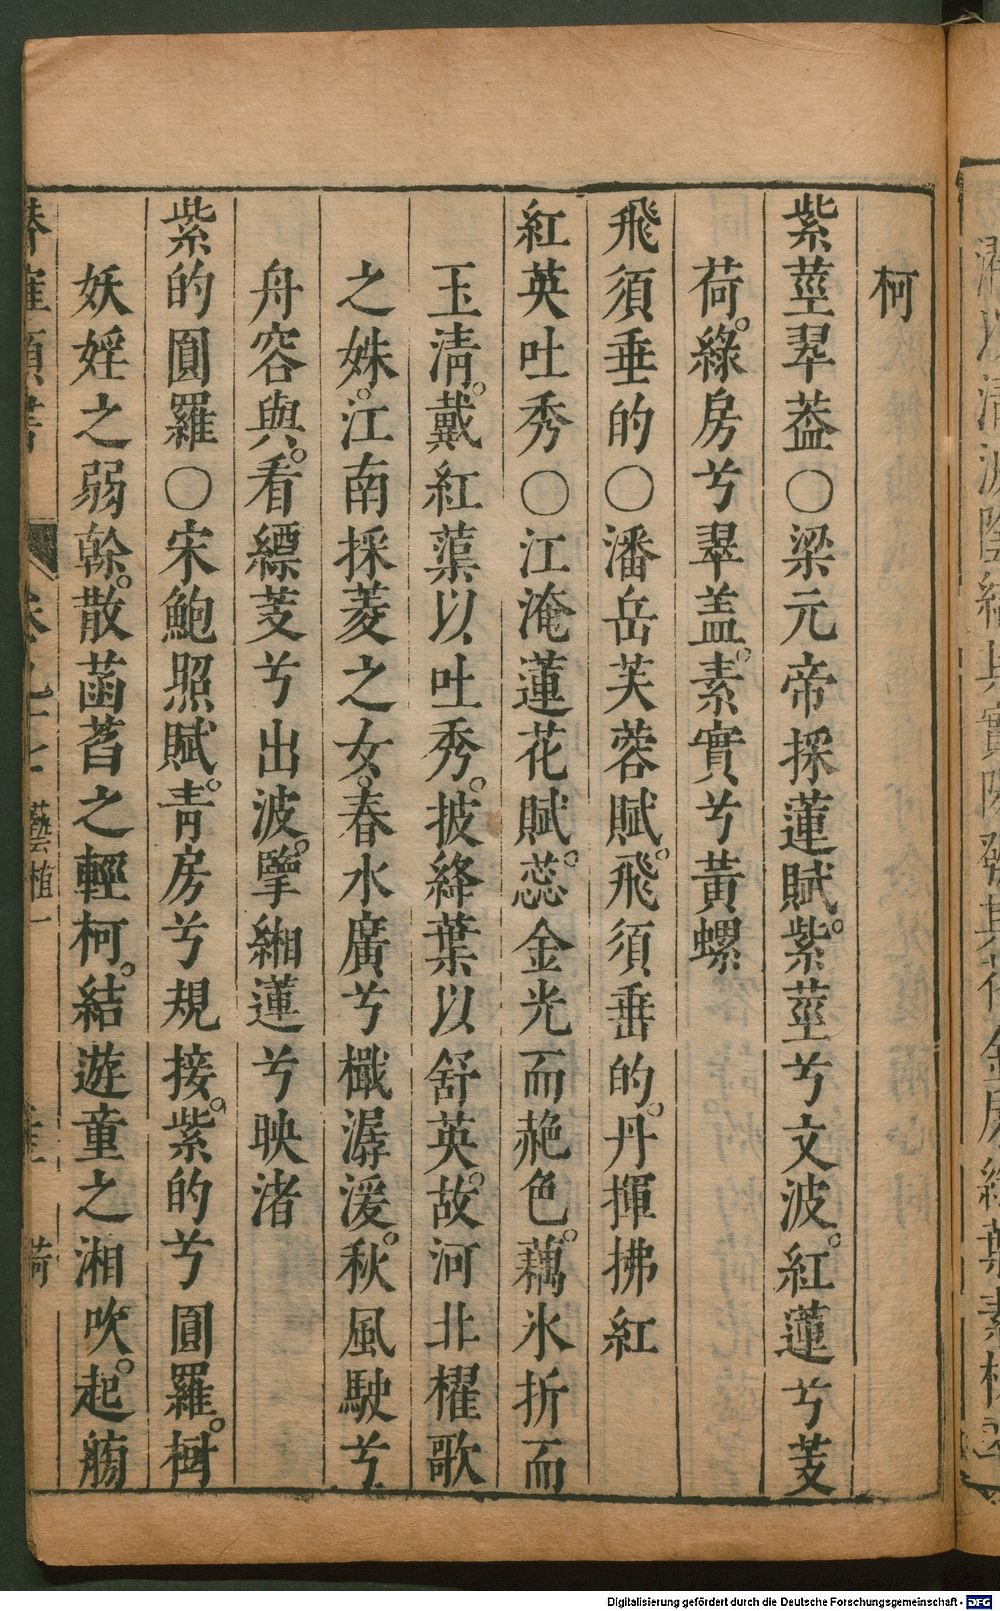 柯
紫莖翠葢○梁元帝採蓮賦。紫莖兮文波。紅蓮兮芰
荷。綠房兮翠盖。素實兮黃螺
飛須垂的○潘岳芙蓉賦。飛須垂的。丹揮拂紅
紅英吐秀○江淹蓮花賦。蕊金光而赩色。藕氷折而
玉清。戴紅蕖以吐秀。披絳葉以舒英。故河北櫂歌
之姝。江南採菱之女。春水廣兮檝潺湲。秋風駛兮
舟容與。看縹芰兮出波。擥緗蓮兮映渚
紫的圓羅○宋鮑照賦。青房兮規接。紫的兮圓羅。樹
妖婬之弱榦。散菡萏之輕柯。結遊童之湘吹。起觴
卷之 藝植一 荷
Digitalisierung gefördert durch die Deutsche Forschungsgemeinschaft - DFG